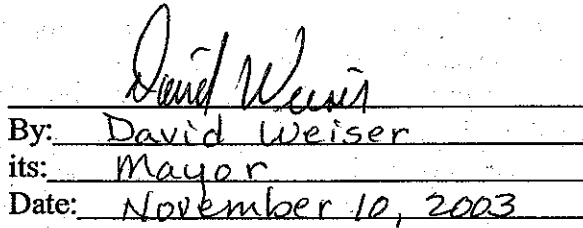 David Weiser
By: David Weiser
its: Mayor
Date: November 10, 2003